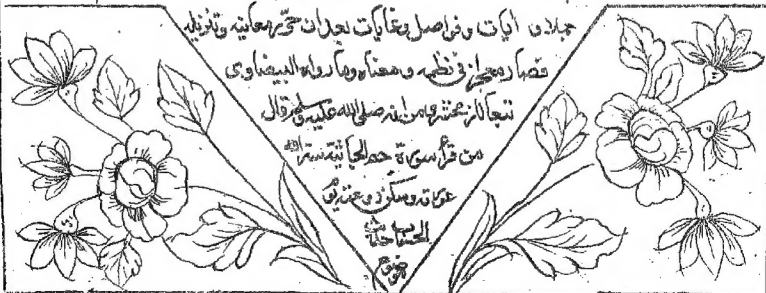 جملا و ايات وفواصل وغايات بعد ان حير معانيه وتنزيله
فصار معجز في نظمه ومعناه وما رواه البيضاوي
تبعا للزمخشري من انه صلى الله عليه وسلم قال
من قرأ سورة حم الجاثية ستر الله
عورته وسكن روعته يوم
الحساب حديث
موضوع